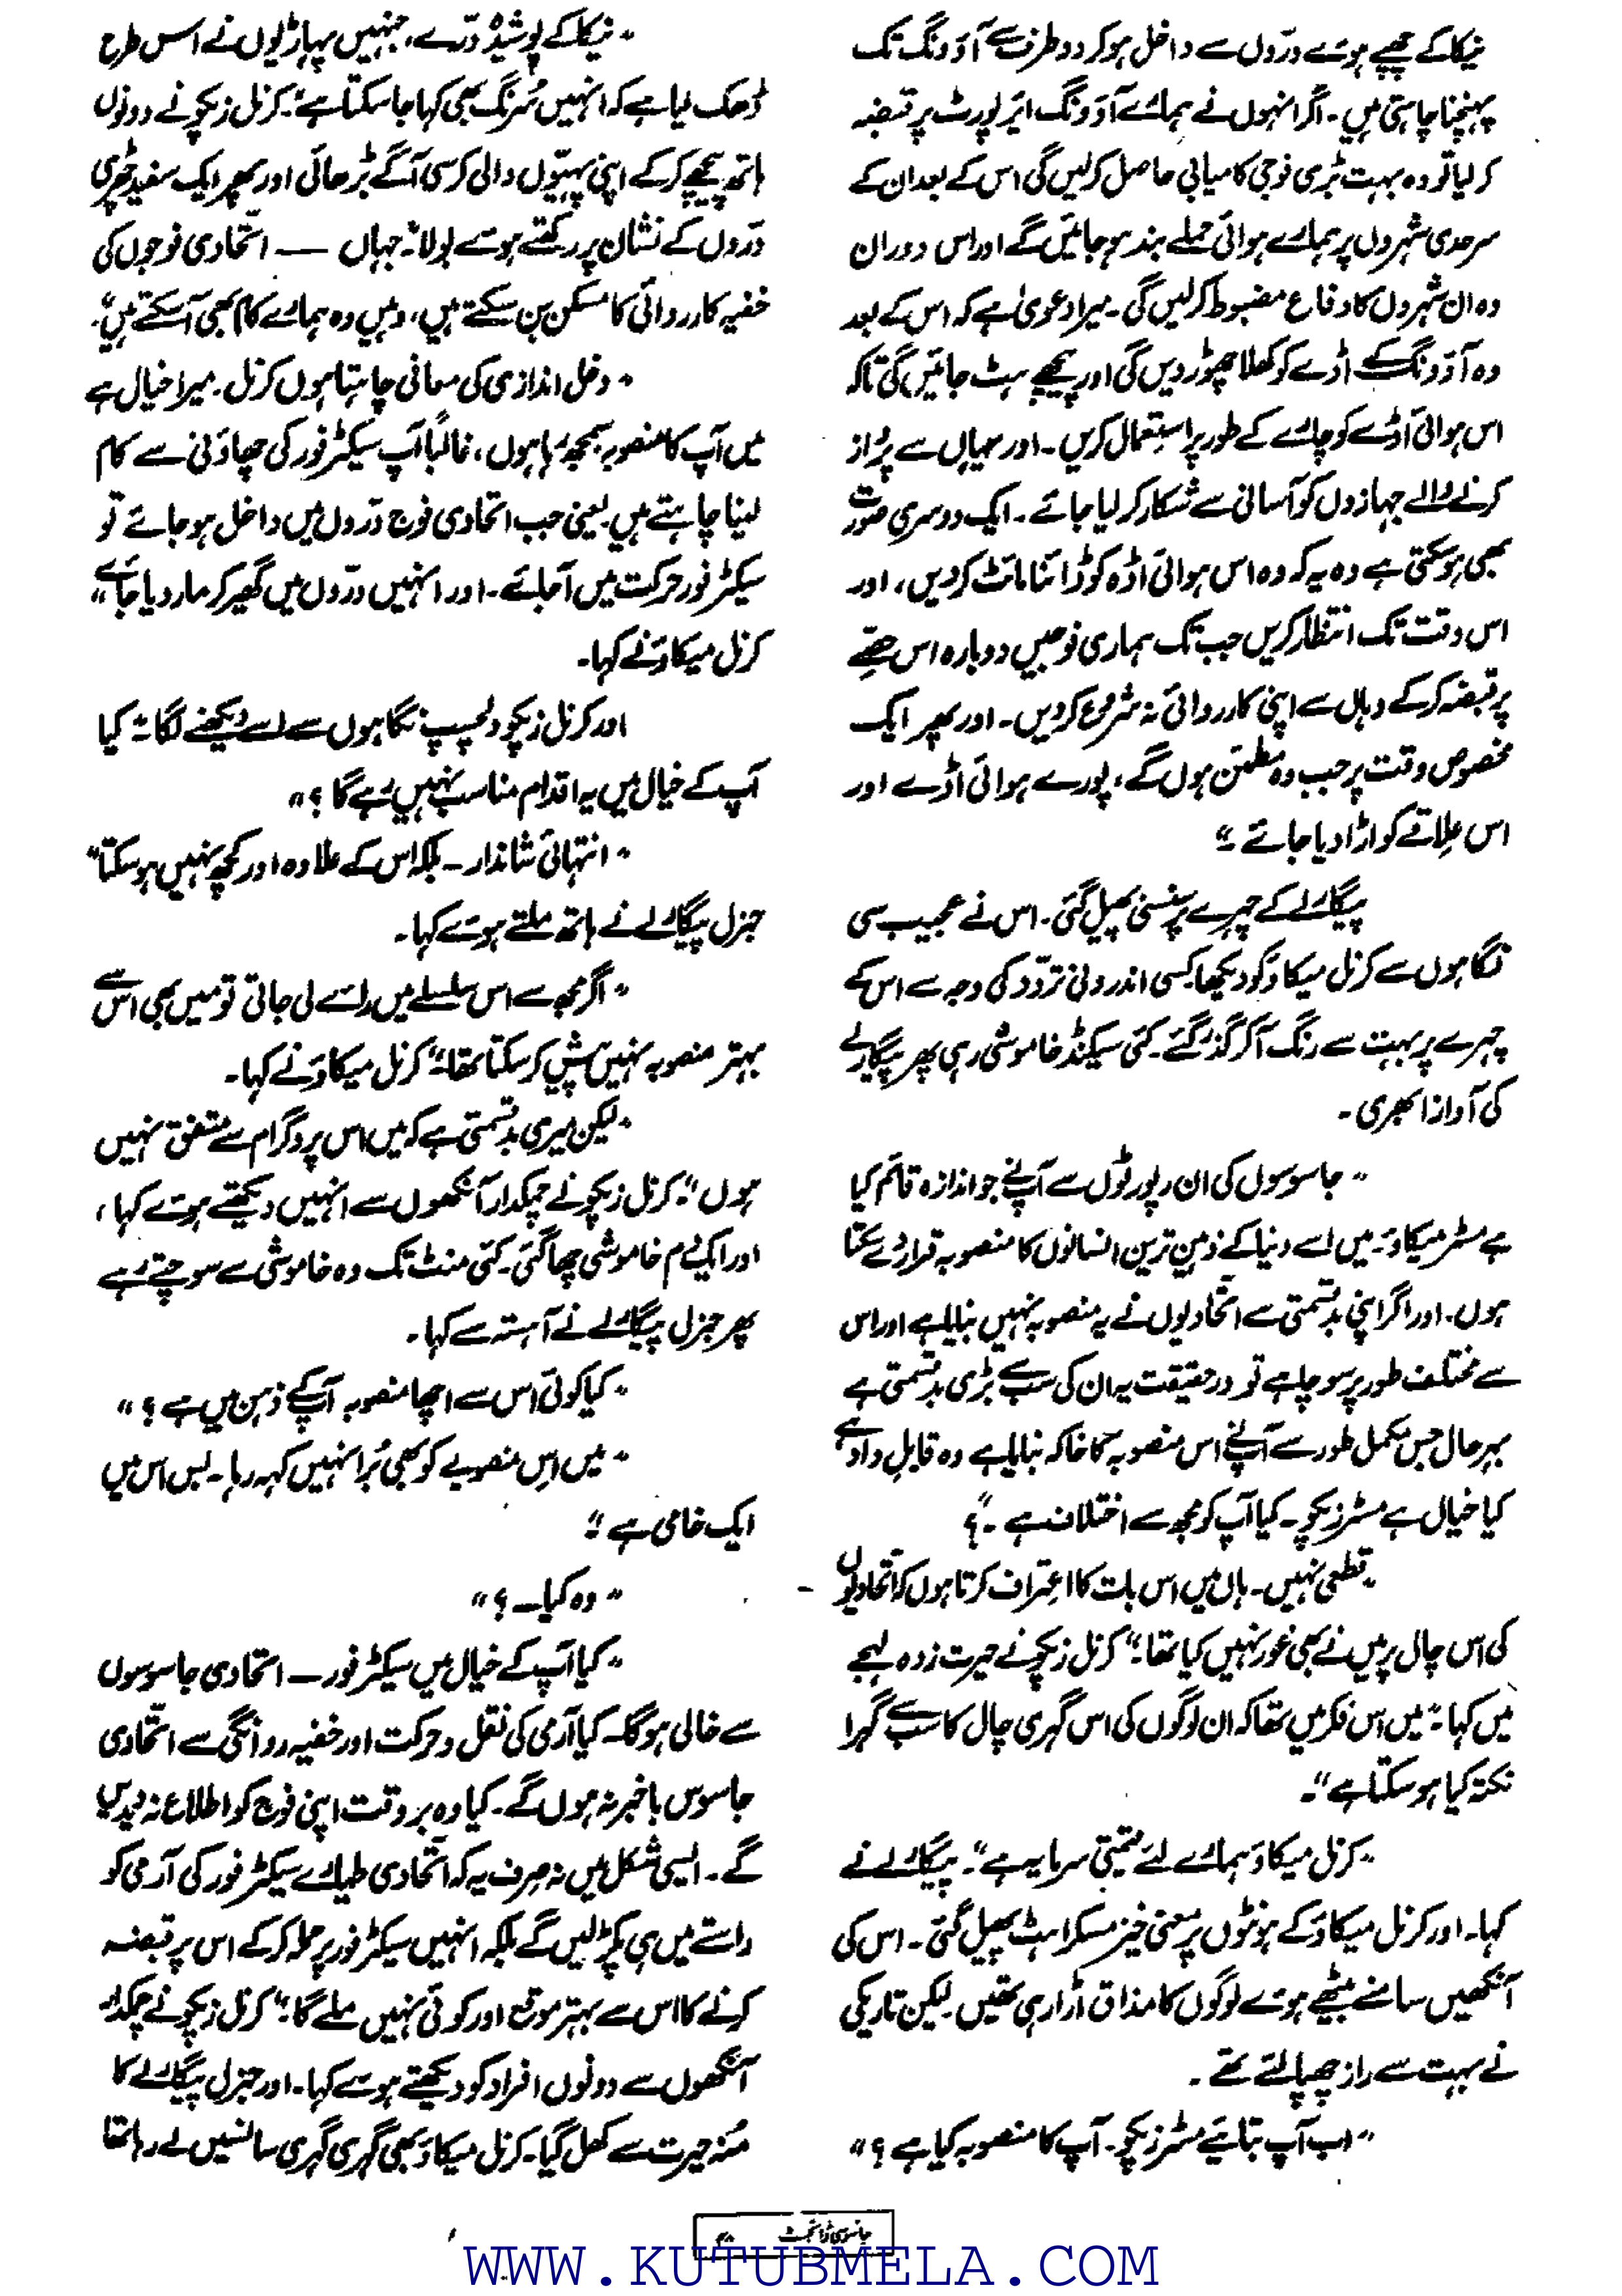 نیکا کے چھپے ہوئے درّوں سے داخل ہو کر دو طرف سے آؤونگ تک
پہنچنا چاہتی ہیں۔ اگر انہوں نے ہمارے آؤونگ ائر پورٹ پر قبضہ
کر لیا تو وہ بہت بڑی فوجی کامیابی حاصل کر لیں گی اس کے بعد ان کے
سرحدی شہروں پر ہمارے ہوائی حملے بند ہو جائیں گے اور اس دوران
وہ ان شہروں کا دفاع مضبوط کر لیں گی۔ میرا دعویٰ ہے کہ اس کے بعد
وہ آؤونگ کے اڈے کو کھلا چھوڑ دیں گی اور پیچھے ہٹ جائیں گی تاکہ
اس ہوائی اڈے کو چارے کے طور پر استعمال کریں۔ اور یہاں سے پرواز
کرنے والے جہازوں کو آسانی سے شکار کر لیا جائے۔ ایک دوسری صورت
بھی ہو سکتی ہے وہ یہ کہ وہ اس ہوائی اڈہ کو ڈائنامائٹ کر دیں، اور
اس وقت تک انتظار کریں جب تک ہماری فوجیں دوبارہ اس حصّے
پر قبضہ کر کے وہاں سے اپنی کارروائی نہ شروع کر دیں۔ اور پھر ایک
مخصوص وقت پر جب وہ مطمئن ہوں گے، پورے ہوائی اڈے اور
اس علاقے کو اڑا دیا جائے۔"
پیگارلے کے چہرے پر سنسنی پھیل گئی۔ اس نے عجیب سی
نگاہوں سے کرنل میکاؤ کو دیکھا کسی اندرونی تردّد کی وجہ سے اس کے
چہرے پر بہت سے رنگ آ کر گذر گئے۔ کئی سیکنڈ خاموشی رہی پھر پیگارلے
کی آواز ابھری۔
"جاسوسوں کی ان رپورٹوں سے آپ نے جو اندازہ قائم کیا
ہے مسٹر میکاؤ۔ میں اسے دنیا کے ذہین ترین انسانوں کا منصوبہ قرار دے سکتا
ہوں۔ اور اگر اپنی بدقسمتی سے اتحادیوں نے یہ منصوبہ نہیں بنایا ہے اور اس
سے مختلف طور پر سوچا ہے تو درحقیقت یہ ان کی سب سے بڑی بدقسمتی ہے
بہرحال جس مکمل طور سے آپ نے اس منصوبہ کا خاکہ بنایا ہے وہ قابلِ داد ہے
کیا خیال ہے مسٹر زیکو۔ کیا آپ کو مجھ سے اختلاف ہے۔؟"
"قطعی نہیں۔ ہاں میں اس بات کا اعتراف کرتا ہوں کہ اتحادیوں
کی اس چال پر میں نے بھی غور نہیں کیا تھا۔" کرنل زیکو نے حیرت زدہ لہجے
میں کہا۔ "میں اس فکر میں تھا کہ ان لوگوں کی اس گہری چال کا سب سے گہرا
نکتہ کیا ہو سکتا ہے"۔
"کرنل میکاؤ ہمارے لئے قیمتی سرمایہ ہے"۔ پیگارلے نے
کہا۔ اور کرنل میکاؤ کے ہونٹوں پر معنی خیز مسکراہٹ پھیل گئی۔ اس کی
آنکھیں سامنے بیٹھے ہوئے لوگوں کا مذاق اڑا رہی تھیں۔ لیکن تاریکی
نے بہت سے راز چھپا لئے تھے۔
"اب آپ بتائیے مسٹر زیکو۔ آپ کا منصوبہ کیا ہے؟"
"نیکا کے پوشیدہ درّے، جنہیں پہاڑیوں نے اس طرح
ڈھک لیا ہے کہ انہیں سُرنگ بھی کہا جا سکتا ہے"۔ کرنل زیکو نے دونوں
ہاتھ پیچھے کر کے اپنی پہیّوں والی کرسی آگے بڑھائی اور پھر ایک سفید چھڑی
درّوں کے نشان پر رکھتے ہوئے بولا: "جہاں — اتحادی فوجوں کی
خفیہ کارروائی کا مسکن بن سکتے ہیں، وہیں وہ ہمارے کام بھی آ سکتے ہیں"۔
"دخل اندازی کی معافی چاہتا ہوں کرنل۔ میرا خیال ہے
میں آپ کا منصوبہ سمجھ رہا ہوں، غالباً آپ سیکٹر فور کی چھاؤنی سے کام
لینا چاہتے ہیں۔ یعنی جب اتحادی فوج درّوں میں داخل ہو جائے تو
سیکٹر فور حرکت میں آ جائے۔ اور انہیں درّوں میں گھیر کر مار دیا جائے"
کرنل میکاؤ نے کہا۔
اور کرنل زیکو دلچسپ نگاہوں سے اسے دیکھنے لگا۔ "کیا
آپ کے خیال میں یہ اقدام مناسب نہیں رہے گا؟"
"انتہائی شاندار۔ بلکہ اس کے علاوہ اور کچھ نہیں ہو سکتا"
جنرل پیگارلے نے ہاتھ ملتے ہوئے کہا۔
"اگر مجھ سے اس سلسلے میں رائے لی جاتی تو میں بھی اس سے
بہتر منصوبہ نہیں پیش کر سکتا تھا۔" کرنل میکاؤ نے کہا۔
"لیکن میری بدقسمتی ہے کہ میں اس پروگرام سے متفق نہیں
ہوں"۔ کرنل زیکو نے چمکدار آنکھوں سے انہیں دیکھتے ہوئے کہا،
اور ایک دم خاموشی چھا گئی۔ کئی منٹ تک وہ خاموشی سے سوچتے رہے
پھر جنرل پیگارلے نے آہستہ سے کہا۔
"کیا کوئی اس سے اچھا منصوبہ آپ کے ذہن میں ہے؟"
"میں اس منصوبے کو بھی بُرا نہیں کہہ رہا۔ بس اس میں
ایک خامی ہے"
"وہ کیا۔؟"
"کیا آپ کے خیال میں سیکٹر فور — اتحادی جاسوسوں
سے خالی ہو گا۔ کیا آرمی کی نقل و حرکت اور خفیہ روانگی سے اتحادی
جاسوس باخبر نہ ہوں گے۔ کیا وہ بروقت اپنی فوج کو اطلاع نہ دیدیں
گے۔ ایسی شکل میں نہ صرف یہ کہ اتحادی طیارے سیکٹر فور کی آرمی کو
راستے میں ہی پکڑ لیں گے بلکہ انہیں سیکٹر فور پر حملہ کر کے اس پر قبضہ
کرنے کا اس سے بہتر موقع اور کوئی نہیں ملے گا۔" کرنل زیکو نے چمکدار
آنکھوں سے دونوں افراد کو دیکھتے ہوئے کہا۔ اور جنرل پیگارلے کا
مُنہ حیرت سے کھل گیا۔ کرنل میکاؤ بھی گہری گہری سانسیں لے رہا تھا
جاسوسی ڈائجسٹ
WWW.KUTUBMELA.COM